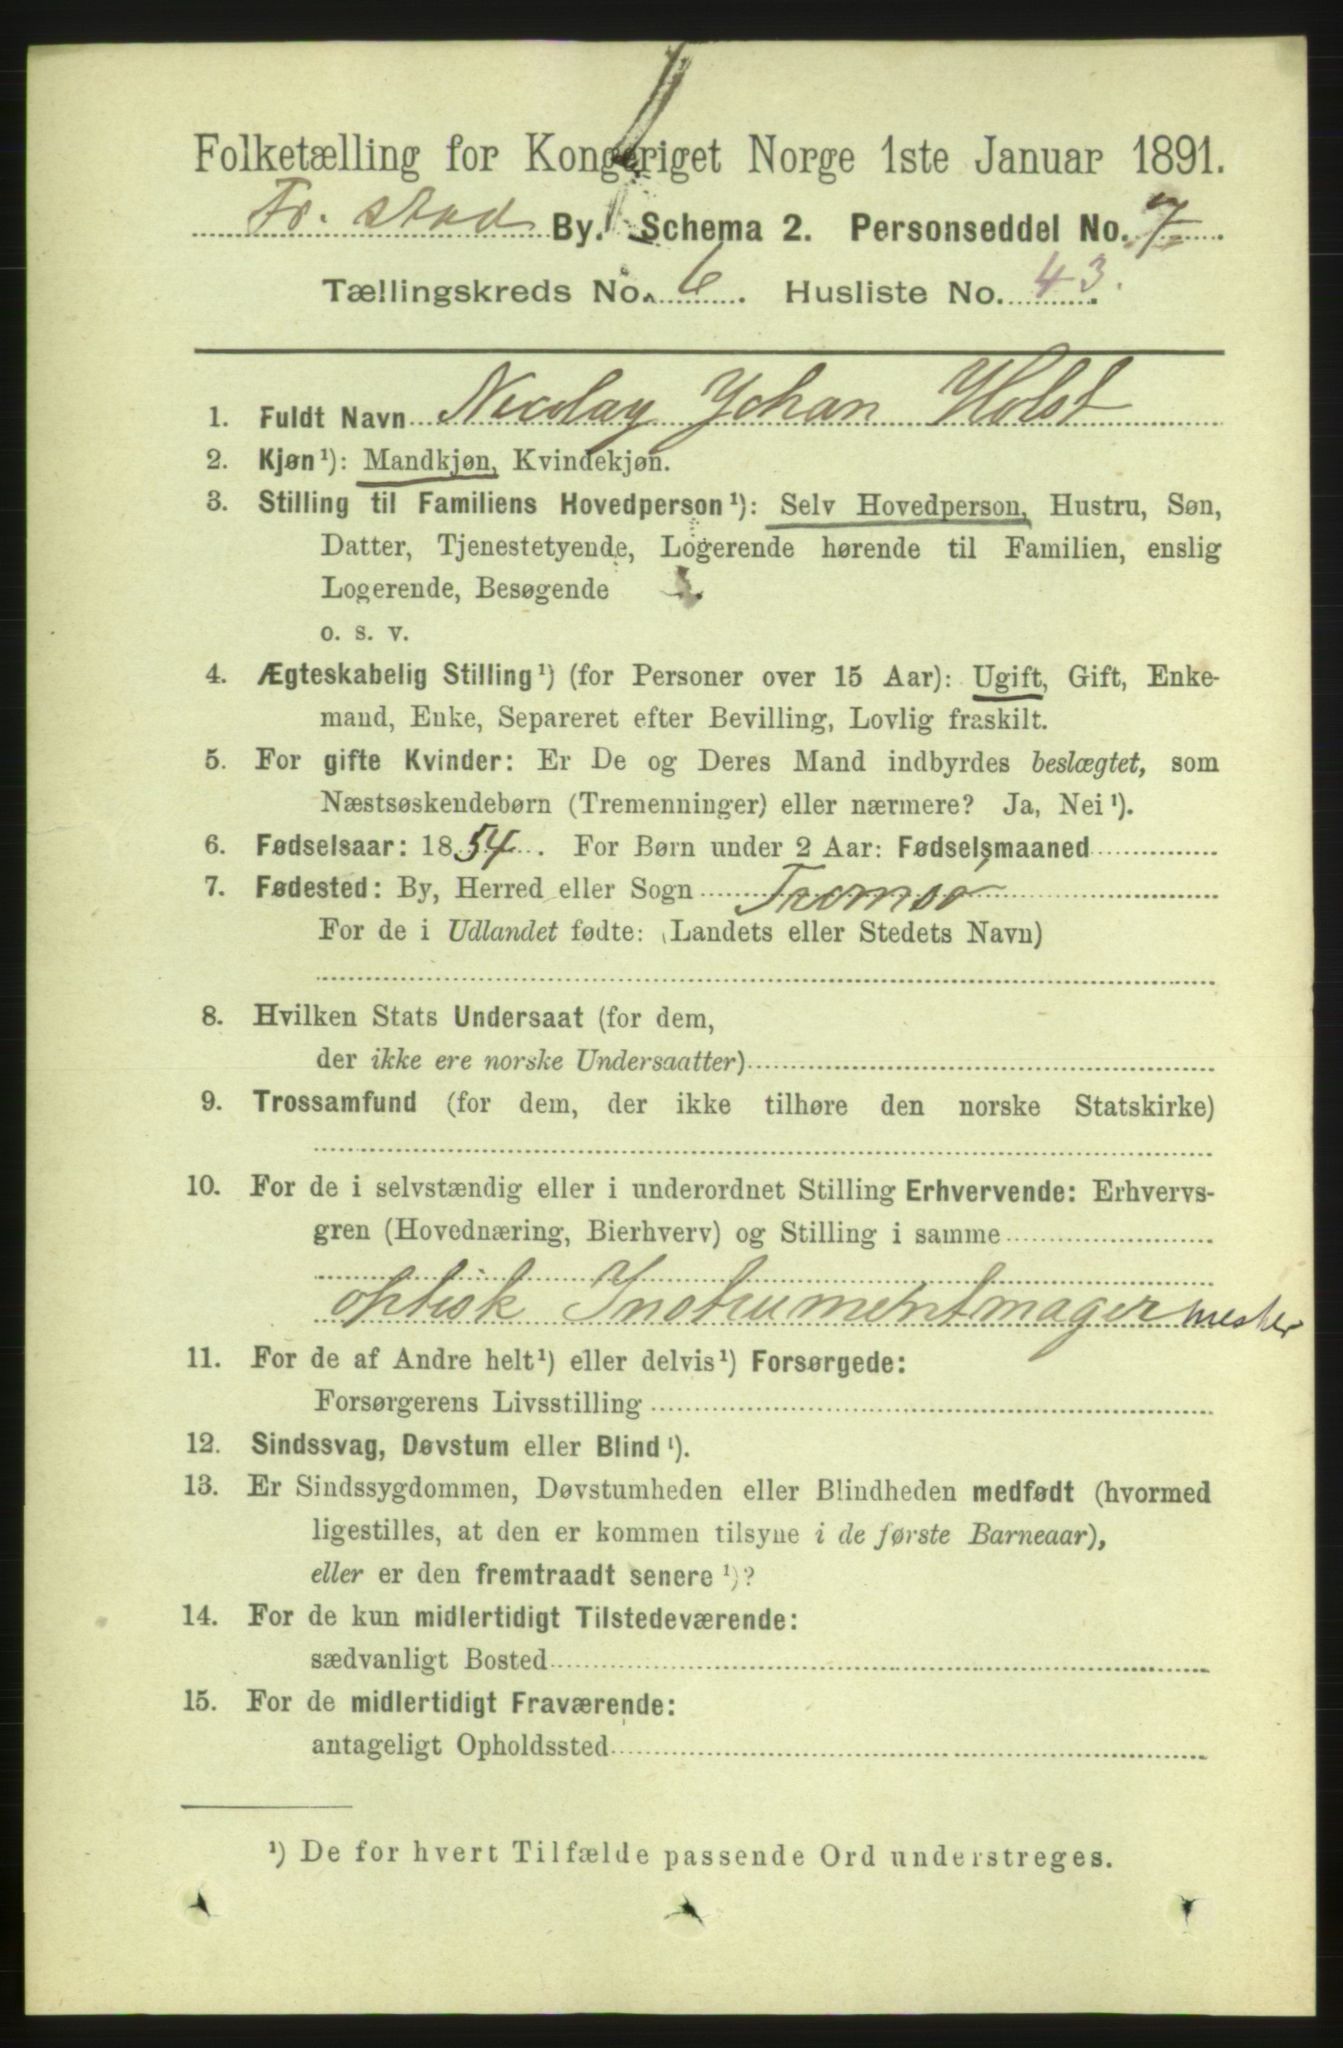 Folketælling for Kongeriget Norge 1ste Januar 1891.
Fr. stad By. Schema 2. Personseddel No. 7
Tællingskreds No. 6. Husliste No. 43.
1. Fuldt Navn Nicolay Johan Holst
2. Kjøn¹): Mandkjøn, Kvindekjøn.
3. Stilling til Familiens Hovedperson¹): Selv Hovedperson, Hustru, Søn,
Datter, Tjenestetyende, Logerende hørende til Familien, enslig
Logerende, Besøgende
o. s. v.
4. Ægteskabelig Stilling¹) (for Personer over 15 Aar): Ugift, Gift, Enke-
mand, Enke, Separeret efter Bevilling, Lovlig fraskilt.
5. For gifte Kvinder: Er De og Deres Mand indbyrdes beslægtet, som
Næstsøskendebørn (Tremenninger) eller nærmere? Ja, Nei¹).
6. Fødselsaar: 1854. For Børn under 2 Aar: Fødselsmaaned
7. Fødested: By, Herred eller Sogn Tromsø
For de i Udlandet fødte: (Landets eller Stedets Navn)
8. Hvilken Stats Undersaat (for dem,
der ikke ere norske Undersaatter)
9. Trossamfund (for dem, der ikke tilhøre den norske Statskirke)
10. For de i selvstændig eller i underordnet Stilling Erhvervende: Erhvervs-
gren (Hovednæring, Bierhverv) og Stilling i samme
optisk Instrumentmager mester
11. For de af Andre helt¹) eller delvis¹) Forsørgede:
Forsørgerens Livsstilling
12. Sindssvag, Døvstum eller Blind¹).
13. Er Sindssygdommen, Døvstumheden eller Blindheden medfødt (hvormed
ligestilles, at den er kommen tilsyne i de første Barneaar),
eller er den fremtraadt senere¹)?
14. For de kun midlertidigt Tilstedeværende:
sædvanligt Bosted
15. For de midlertidigt Fraværende:
antageligt Opholdssted
¹) De for hvert Tilfælde passende Ord understreges.